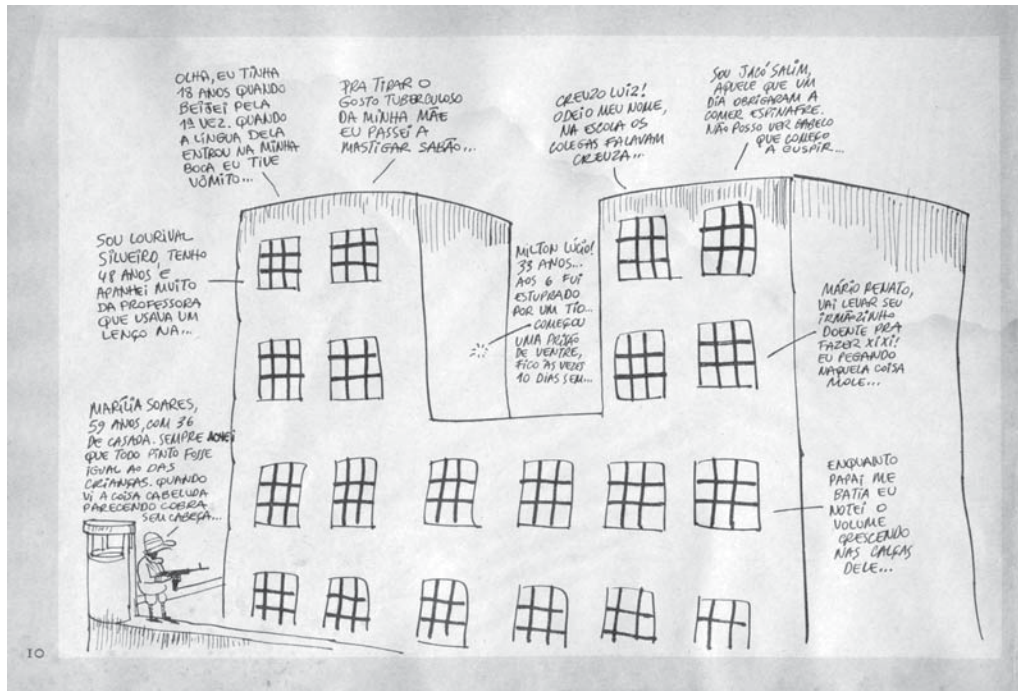 OLHA, EU TINHA
18 ANOS QUANDO
BEIJEI PELA
1ª VEZ. QUANDO
A LÍNGUA DELA
ENTROU NA MINHA
BOCA EU TIVE
VÔMITO...
PRA TIRAR O
GOSTO TUBERCULOSO
DA MINHA MÃE
EU PASSEI A
MASTIGAR SABÃO...
CREUZO LUIZ!
ODEIO MEU NOME,
NA ESCOLA OS
COLEGAS FALAVAM
CREUZA...
SOU JACÓ SALIM,
AQUELE QUE UM
DIA OBRIGARAM A
COMER ESPINAFRE.
NÃO POSSO VER CABELO
QUE COMEÇO
A CUSPIR...
SOU LOURIVAL
SILVEIRO, TENHO
48 ANOS E
APANHEI MUITO
DA PROFESSORA
QUE USAVA UM
LENÇO NA...
MILTON LÚCIO!
33 ANOS...
AOS 6 FUI
ESTUPRADO
POR UM TIO...
COMEÇOU
UMA PRISÃO
DE VENTRE,
FICO ÀS VEZES
10 DIAS SEM...
MÁRIO RENATO,
VAI LEVAR SEU
IRMÃOZINHO
DOENTE PRA
FAZER XIXI!
EU PEGANDO
NAQUELA COISA
MOLE...
MARÍLIA SOARES,
59 ANOS, COM 36
DE CASADA. SEMPRE ACHEI
QUE TODO PINTO FOSSE
IGUAL AO DAS
CRIANÇAS. QUANDO
VI A COISA CABELUDA
PARECENDO COBRA
SEM CABEÇA...
ENQUANTO
PAPAI ME
BATIA EU
NOTEI O
VOLUME
CRESCENDO
NAS CALÇAS
DELE...
10